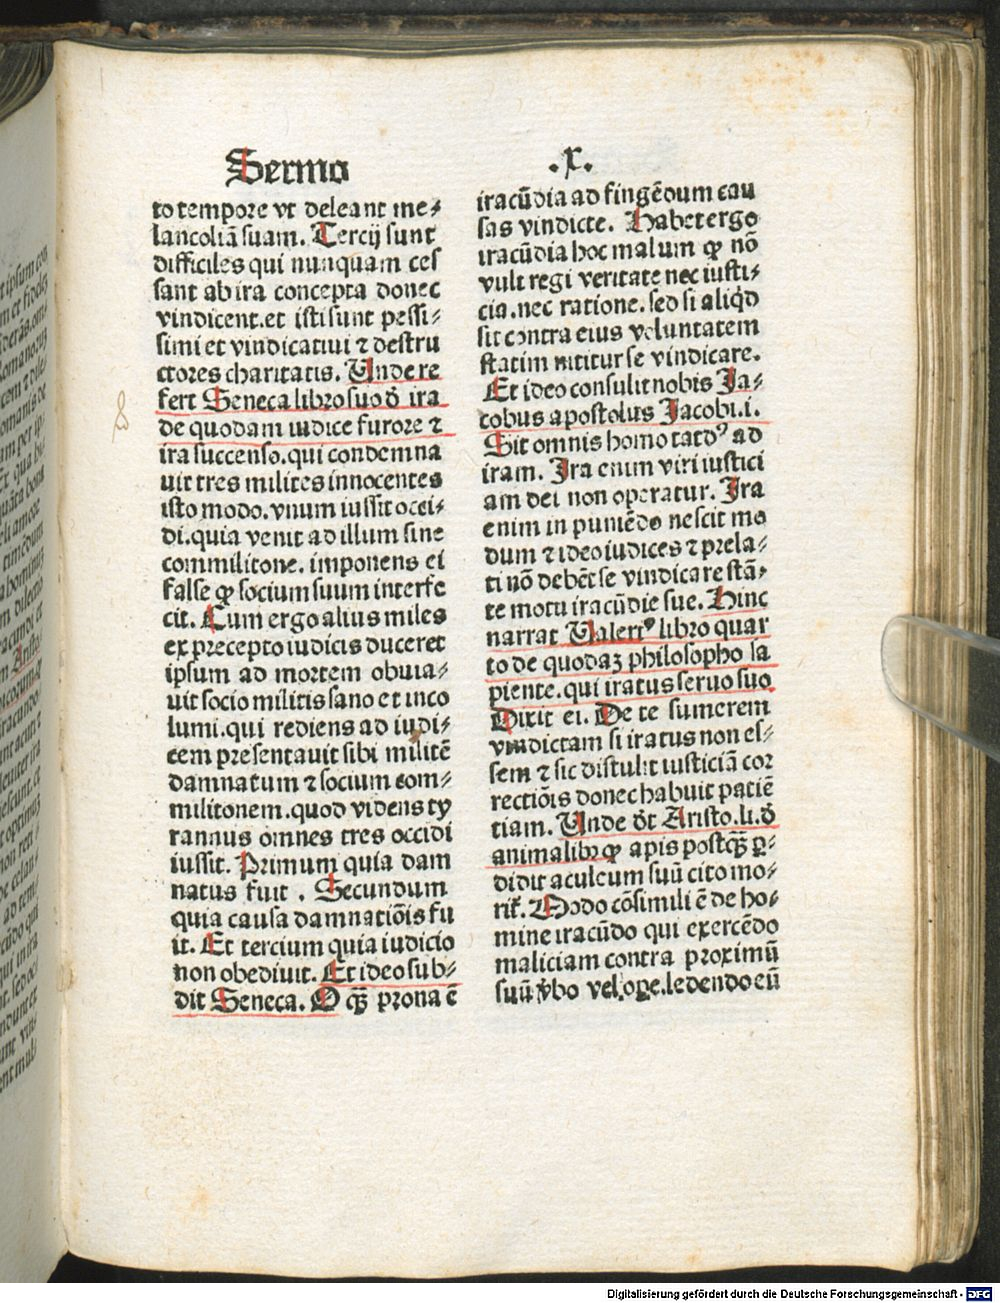 Sermo
.X.
to tempore vt deleant me⸗
lancoliā suam. Tercij sunt
difficiles qui nunquam ces
sant ab ira concepta donec
vindicent. et isti sunt pessi⸗
simi et vindicatiui ⁊ destru
ctores charitatis. Unde re
fert Seneca libro suo đ ira
de quodam iudice furore ⁊
ira succenso. qui condemna
uit tres milites innocentes
isto modo. vnum iussit occi⸗
di. quia venit ad illum sine
commilitone. imponens ei
false ꝙ socium suum interfe
cit. Cum ergo alius miles
ex precepto iudicis duceret
ipsum ad mortem obuia⸗
uit socio militis sano et inco
lumi. qui rediens ad iudi⸗
cem presentauit sibi militē
damnatum ⁊ socium com⸗
militonem. quod videns ty
rannus omnes tres occidi
iussit. Primum quia dam
natus fuit . Secundum
quia causa damnatiōis fu
it. Et tercium quia iudicio
non obediuit. Et ideo sub⸗
dit Seneca. O qꝫ prona ē
iracūdia ad fingēdum cau
sas vindicte. Habet ergo
iracūdia hoc malum ꝙ nō
vult regi veritate nec iusti⸗
cia. nec ratione. sed si aliqd
sit contra eius voluntatem
statim nititur se vindicare.
Et ideo consulit nobis Ja⸗
cobus apostolus Jacobi. i.
Sit omnis homo tardꝰ ad
iram. Ira enim viri iustici
am dei non operatur. Ira
enim in puniēdo nescit mo
dum ⁊ ideo iudices ⁊ prela⸗
ti nō debēt se vindicare stā⸗
te motu iracūdie sue. Hinc
narrat Ualeriꝰ libro quar
to de quodaꝫ philosopho sa
piente. qui iratus seruo suo
Dixit ei. De te sumerem
vindictam si iratus non es⸗
sem ⁊ sic distulit iusticiā cor
rectiōis donec habuit patiē
tiam. Unde đt Aristo. li. đ
animalibꝫ ꝙ apis postqꝫ ꝑ⸗
didit aculeum suū cito mo⸗
rit᷑. Modo cōsimili ē de ho⸗
mine iracūdo qui exercēdo
maliciam contra proximū
suū v̄bo vel oꝑe. ledendo eū
Digitalisierung gefördert durch die Deutsche Forschungsgemeinschaft - DFG